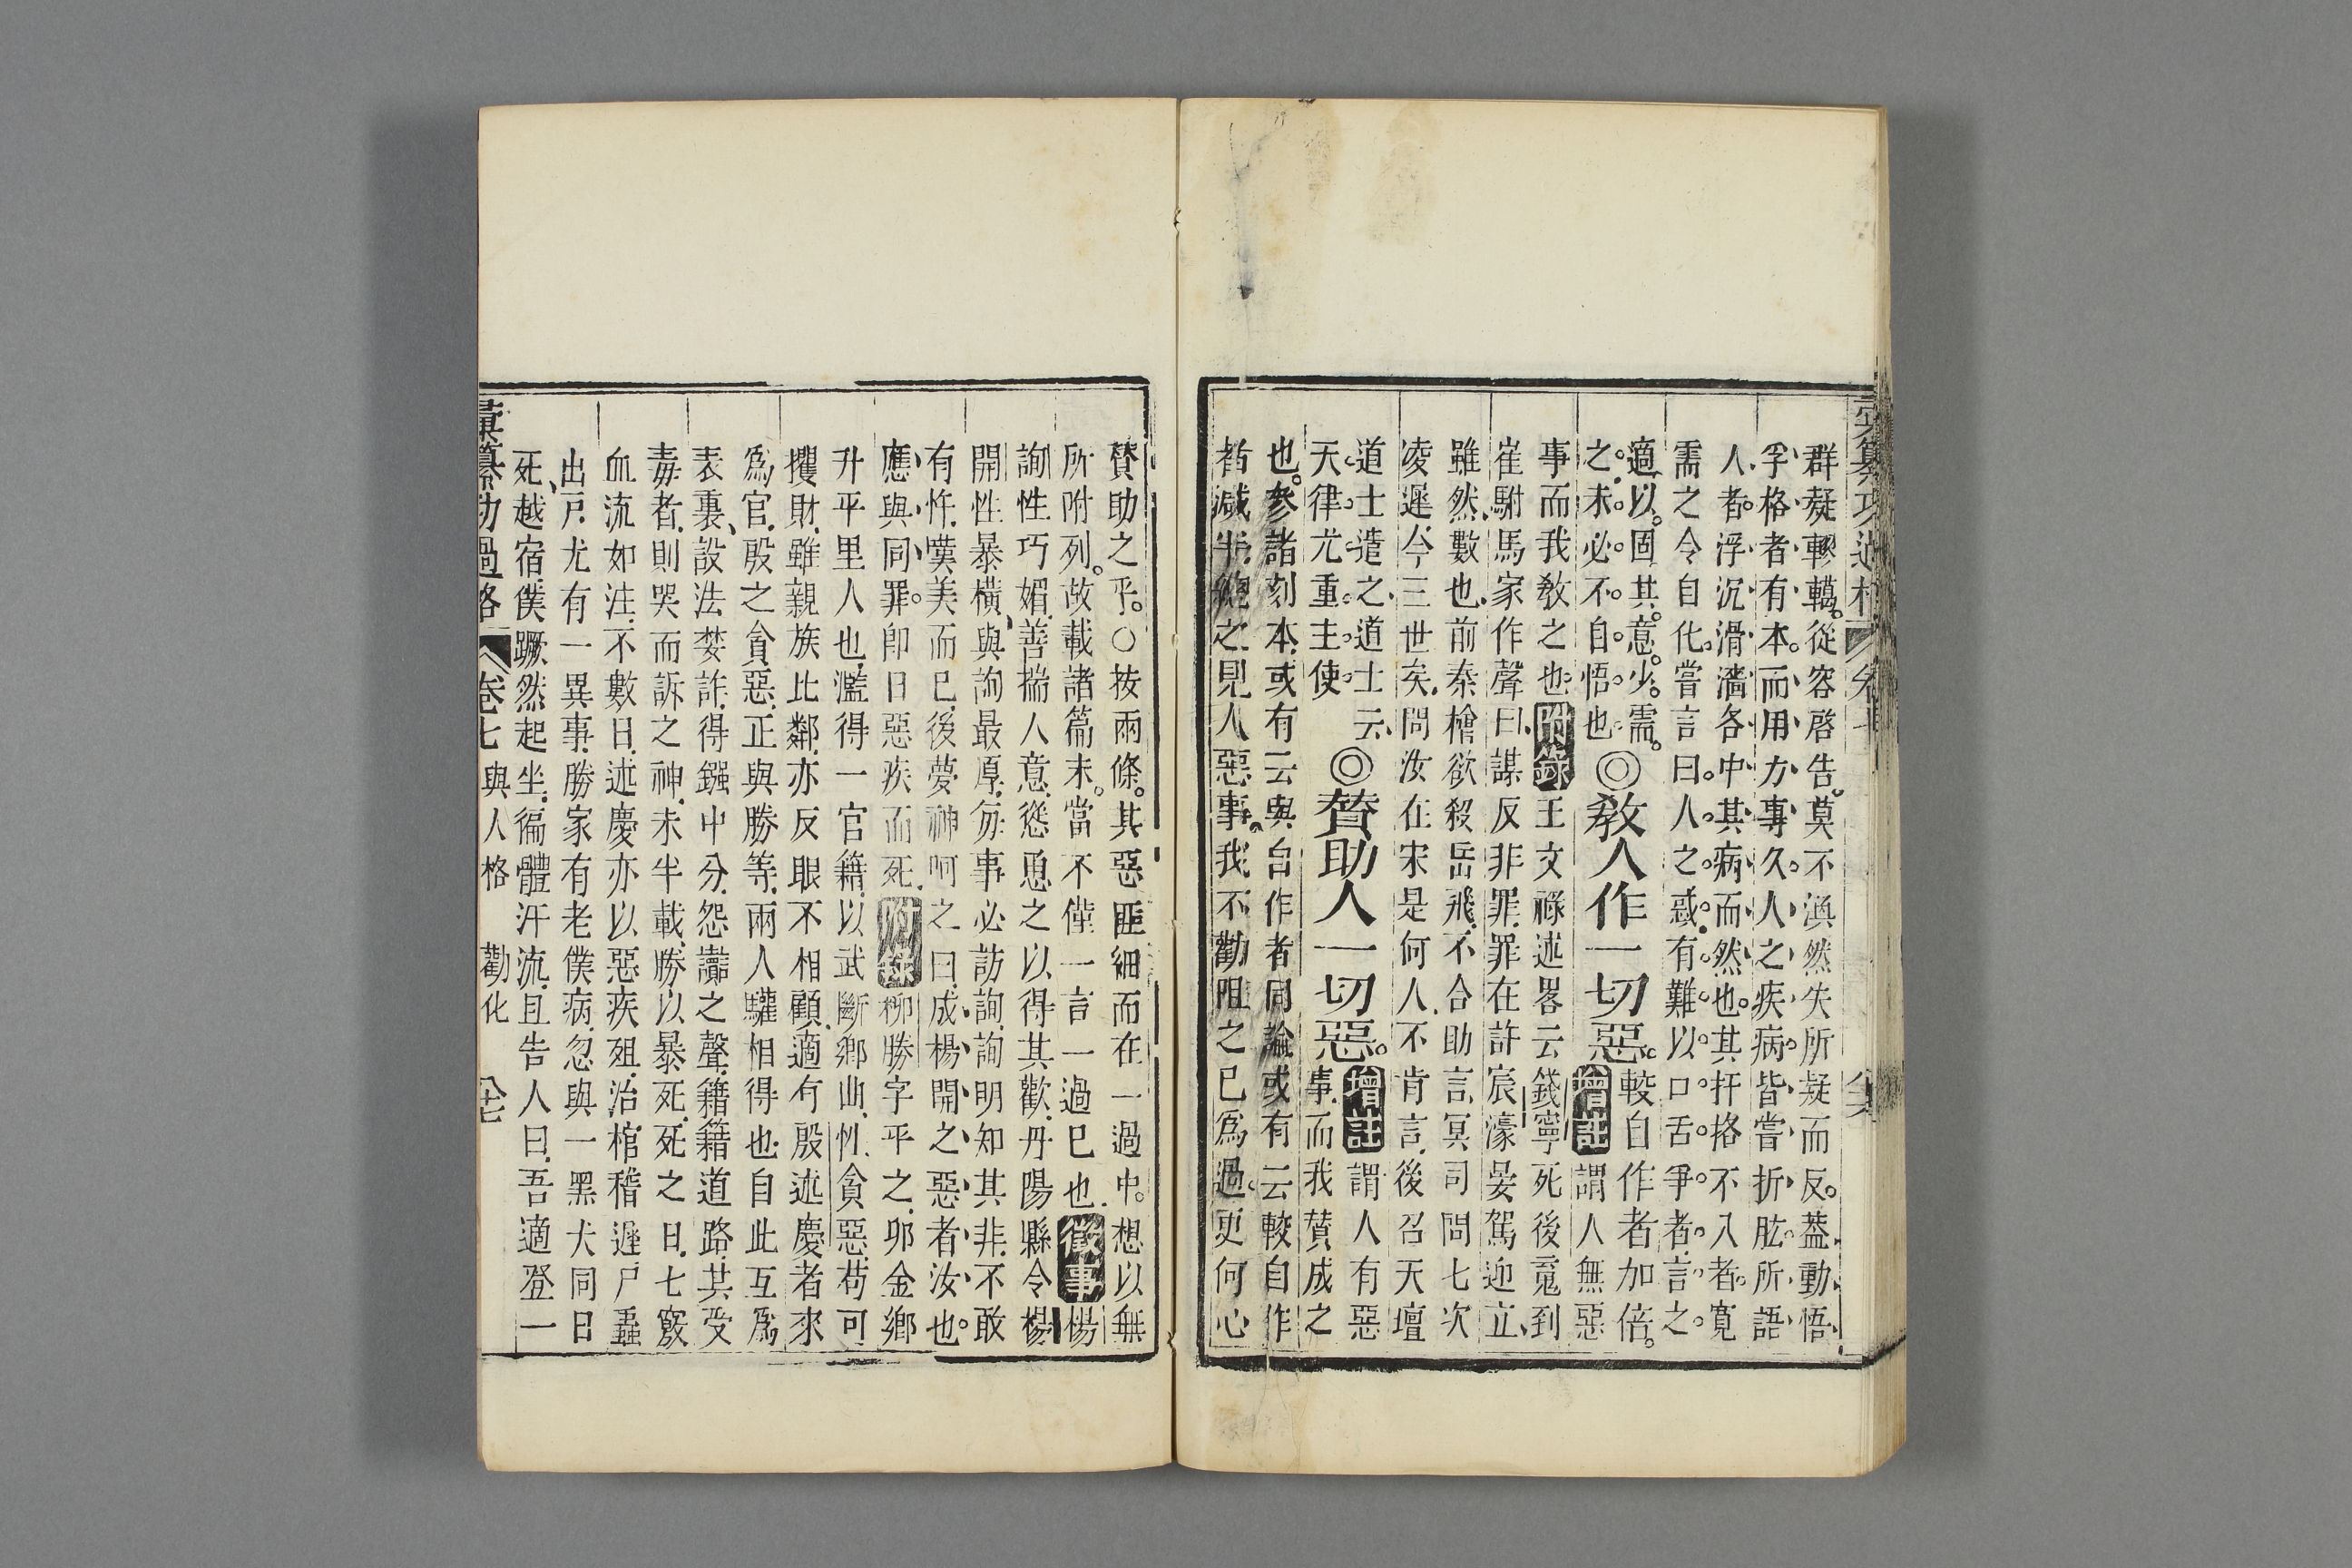 彙纂功過格 卷七
群疑轇轕。從容啓告。莫不渙然失所疑而反。葢動悟
孚格者有本。而用力專久。人之疾病。皆嘗折肱。所語
人者。浮沉滑濇各中其病而然也。其扞格不入者。寬
需之令自化。嘗言曰。人之惑。有難以口舌爭者。言之
適以固其意。少需。
之。未必不自悟也。◎教人作一切惡。較自作者加倍。增註謂人無惡
事而我敎之也。附錄王文祿述畧云錢寧死後䰟到
崔駙馬家作聲曰。謀反非罪。罪在許宸濠晏駕迎立
雖然數也。前秦檜欲殺岳飛。不合助言。冥司問七次
凌遲。今三世矣。問汝在宋是何人。不肯言。後召天壇
道士遣之。道士云
天律尤重主使。◎贊助人一切惡。增註謂人有惡
事。而我贊成之
也。參諸刻本。或有云與自作者同論。或有云較自作
者減半。總之見人惡事。我不勸阻之。已爲過。更何心
贊助之乎。○按兩條。其惡匪細而在一過中。想以無
所附列。故載諸篇末。當不僅一言一過已也。徵事楊
詢性巧媚。善揣人意。慫恿之以得其歡。丹陽縣令楊
開性暴橫。與詢最厚。每事必訪詢。詢明知其非。不敢
有忤。嘆美而已。後夢神呵之曰。成楊開之惡者。汝也。
應與同罪。卽日惡疾而死。附錄柳勝字平之。卯金鄉
升平里人也。濫得一官籍。以武斷鄉曲。性貪惡。苟可
攫財。雖親族比鄰。亦反眼不相顧。適有殷述慶者來
爲官。殷之貪惡。正與勝等。兩人驩相得也。自此互爲
表裏。設法婪詐。得鏹中分。怨讟之聲。籍籍道路。其受
毒者。則哭而訴之神。未半載。勝以暴死。死之日。七竅
血流如注。不數日。述慶亦以惡疾殂。治棺稽遲。尸蟲
出戶。尤有一異事。勝家有老僕病。忽與一黑犬同日
死。越宿。僕蹶然起坐。徧體汗流。且告人曰。吾適登一
彙纂功過格 卷七 與人格 勸化